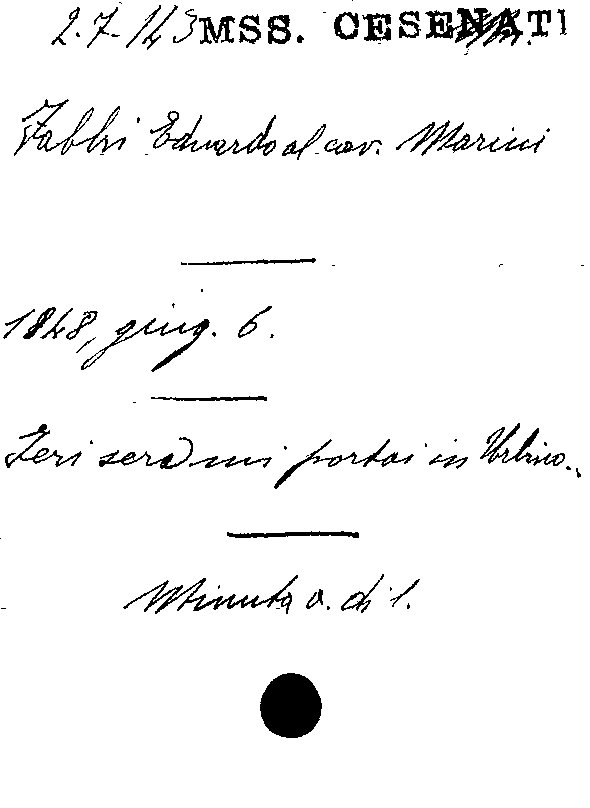 2.7-143 MSS. CESENATI
Fabbri Eduardo al cav. Marini
1848, giug. 6.
Ieri sera mi portai in Urbino..
Minuta a. di l.